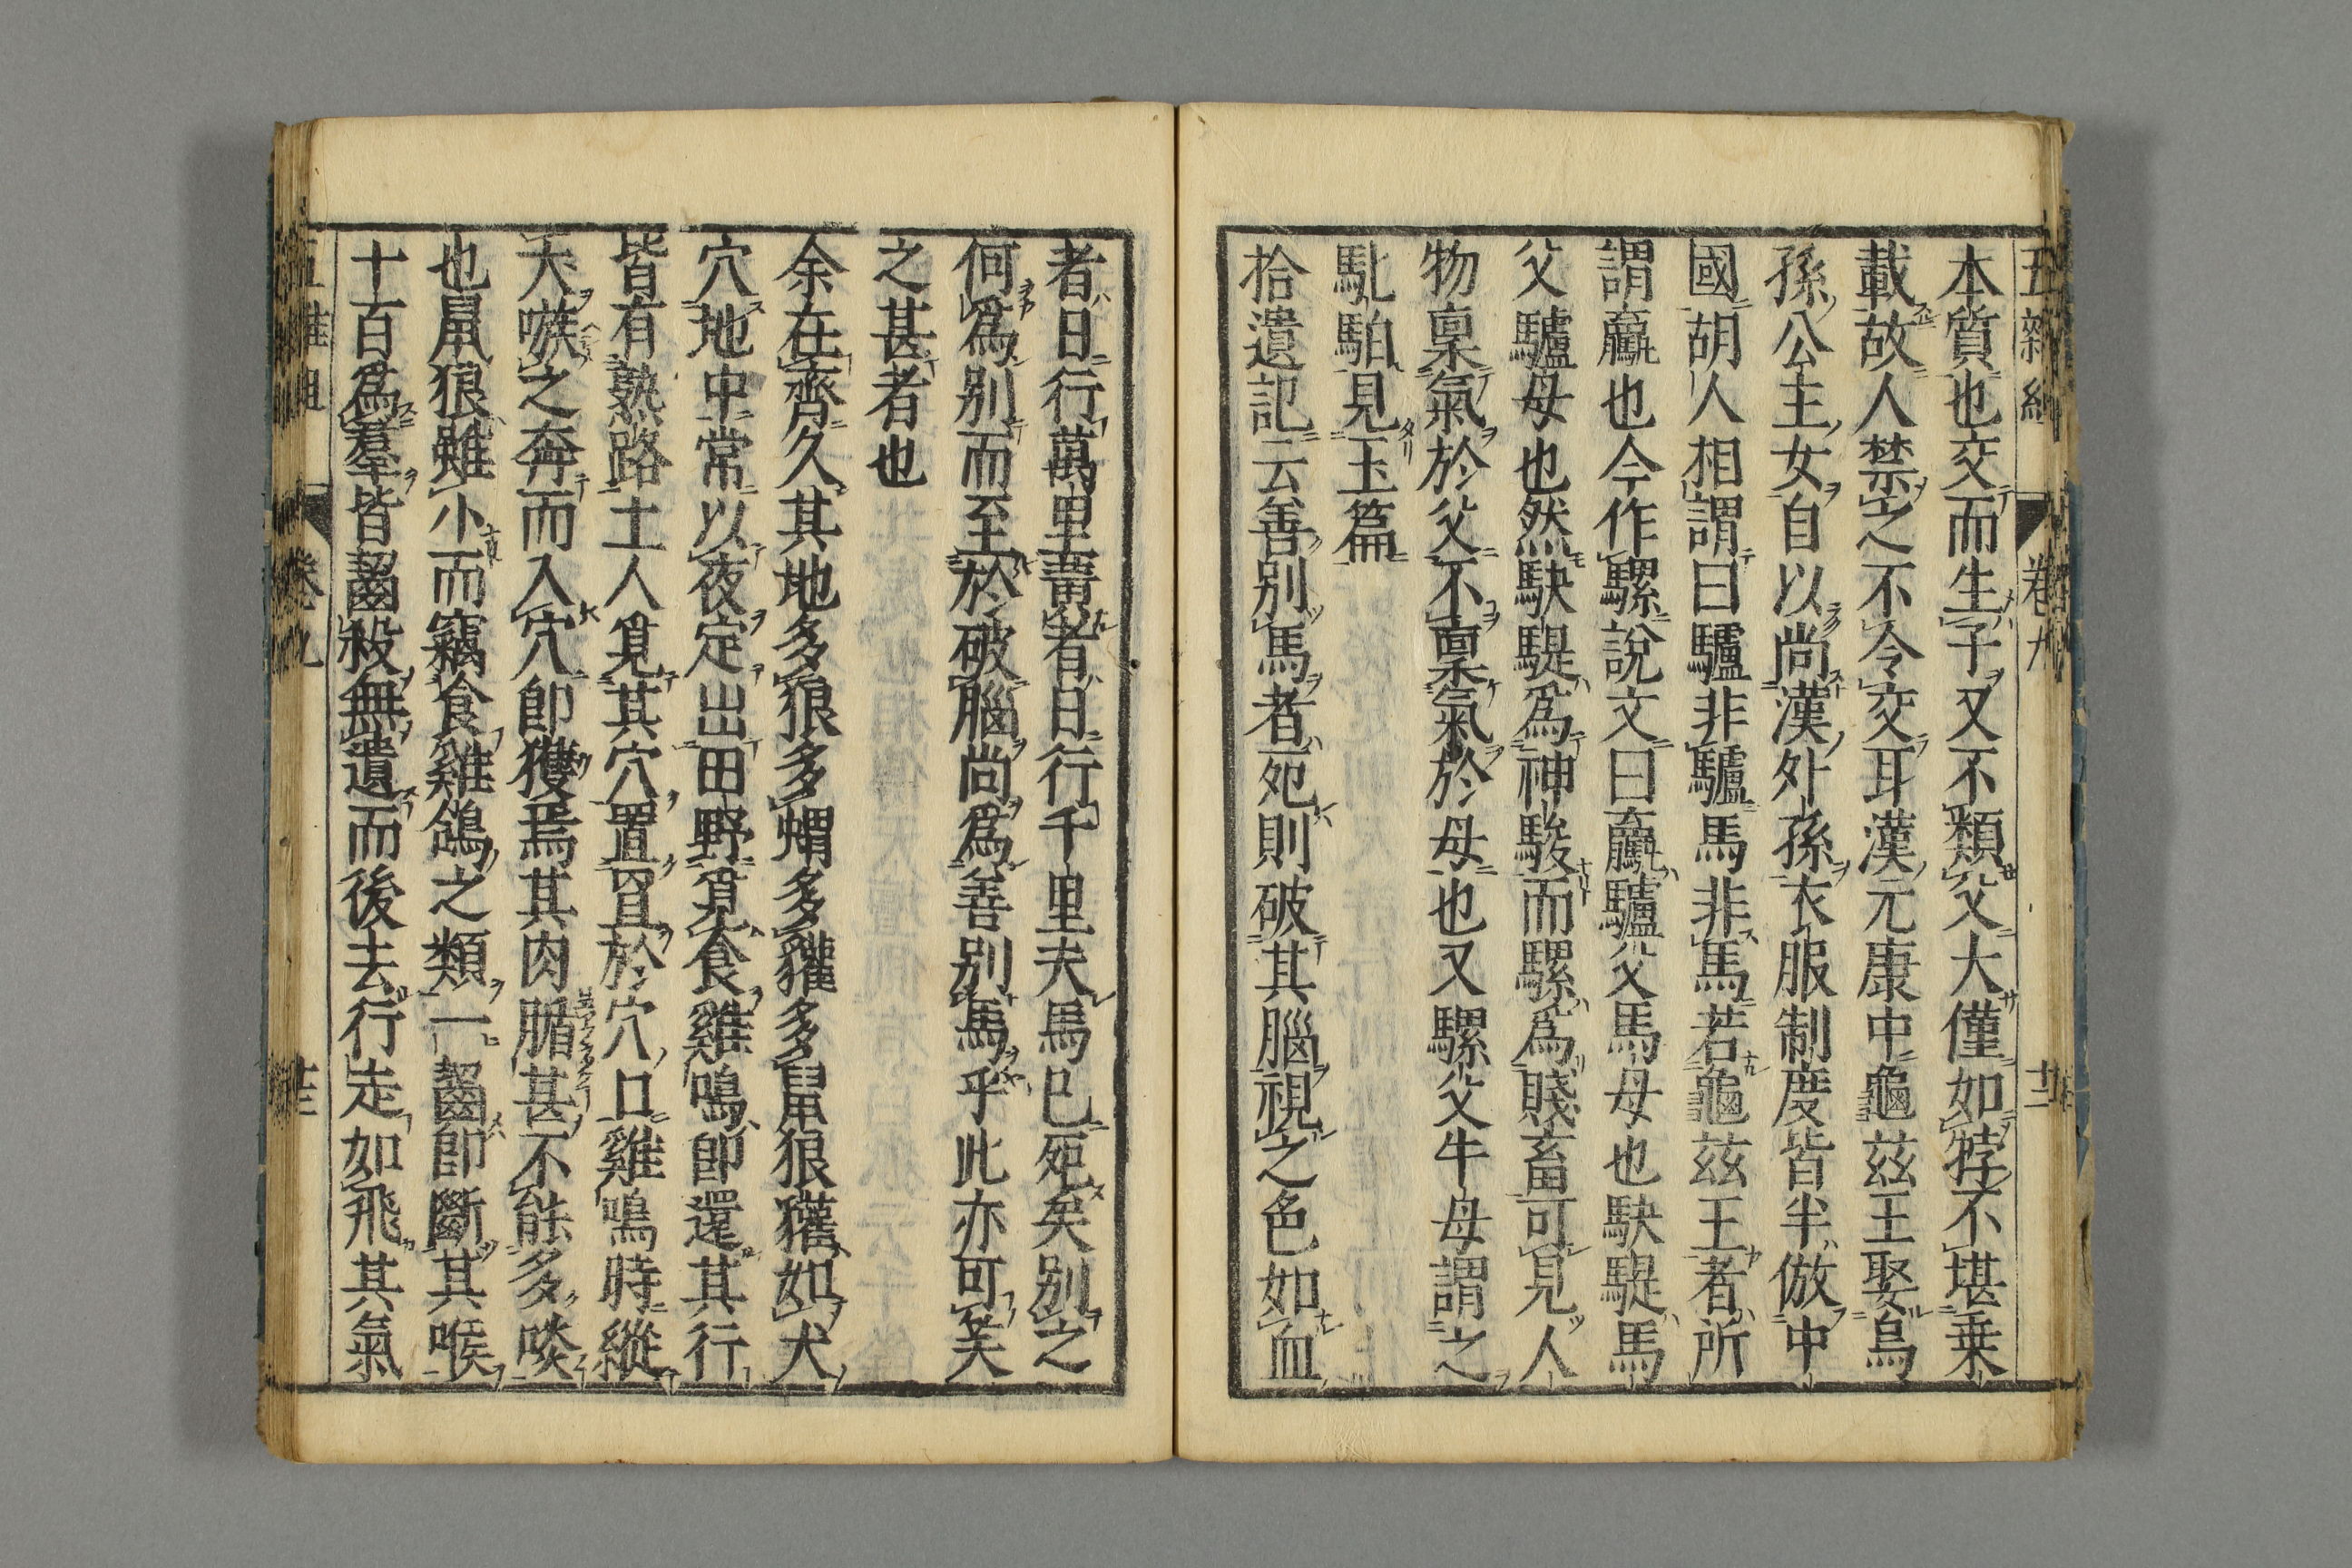 本質也交而生子又不類父大僅如㹀不堪乗
載故人禁之不令交耳漢元康中龜茲王娶烏
孫公主女自以尚漢外孫衣服制度皆半倣中
國胡人相謂曰驢非驢馬非馬若龜茲王者所
謂驘也今作騾說文曰驘驢父馬母也駃騠馬
父驢母也然駃騠爲神駿而騾爲賤畜可見人
物稟氣於父不稟氣於母也又騾父牛母謂之
馲見玉篇
拾遺記云善別馬者死則破其腦視之色如血
者日行萬里黃者日行千里夫馬已死矣別之
何爲別而至於破腦尚爲善別馬乎此亦可笑
之甚者也
余在齊久其地多狼多蝟多獾多鼠狼獾如犬
穴地中常以夜定出田野覓食雞鳴即還其行
皆有熟路土人覓其穴置罝於穴口雞鳴時縱
犬嗾之奔而入穴即獲焉其肉腯甚不能多啖
也鼠狼雖小而竊食雞鴿之類一齧即斷其喉
十百爲羣皆齧殺無遺而後去行走如飛其氣
卷九